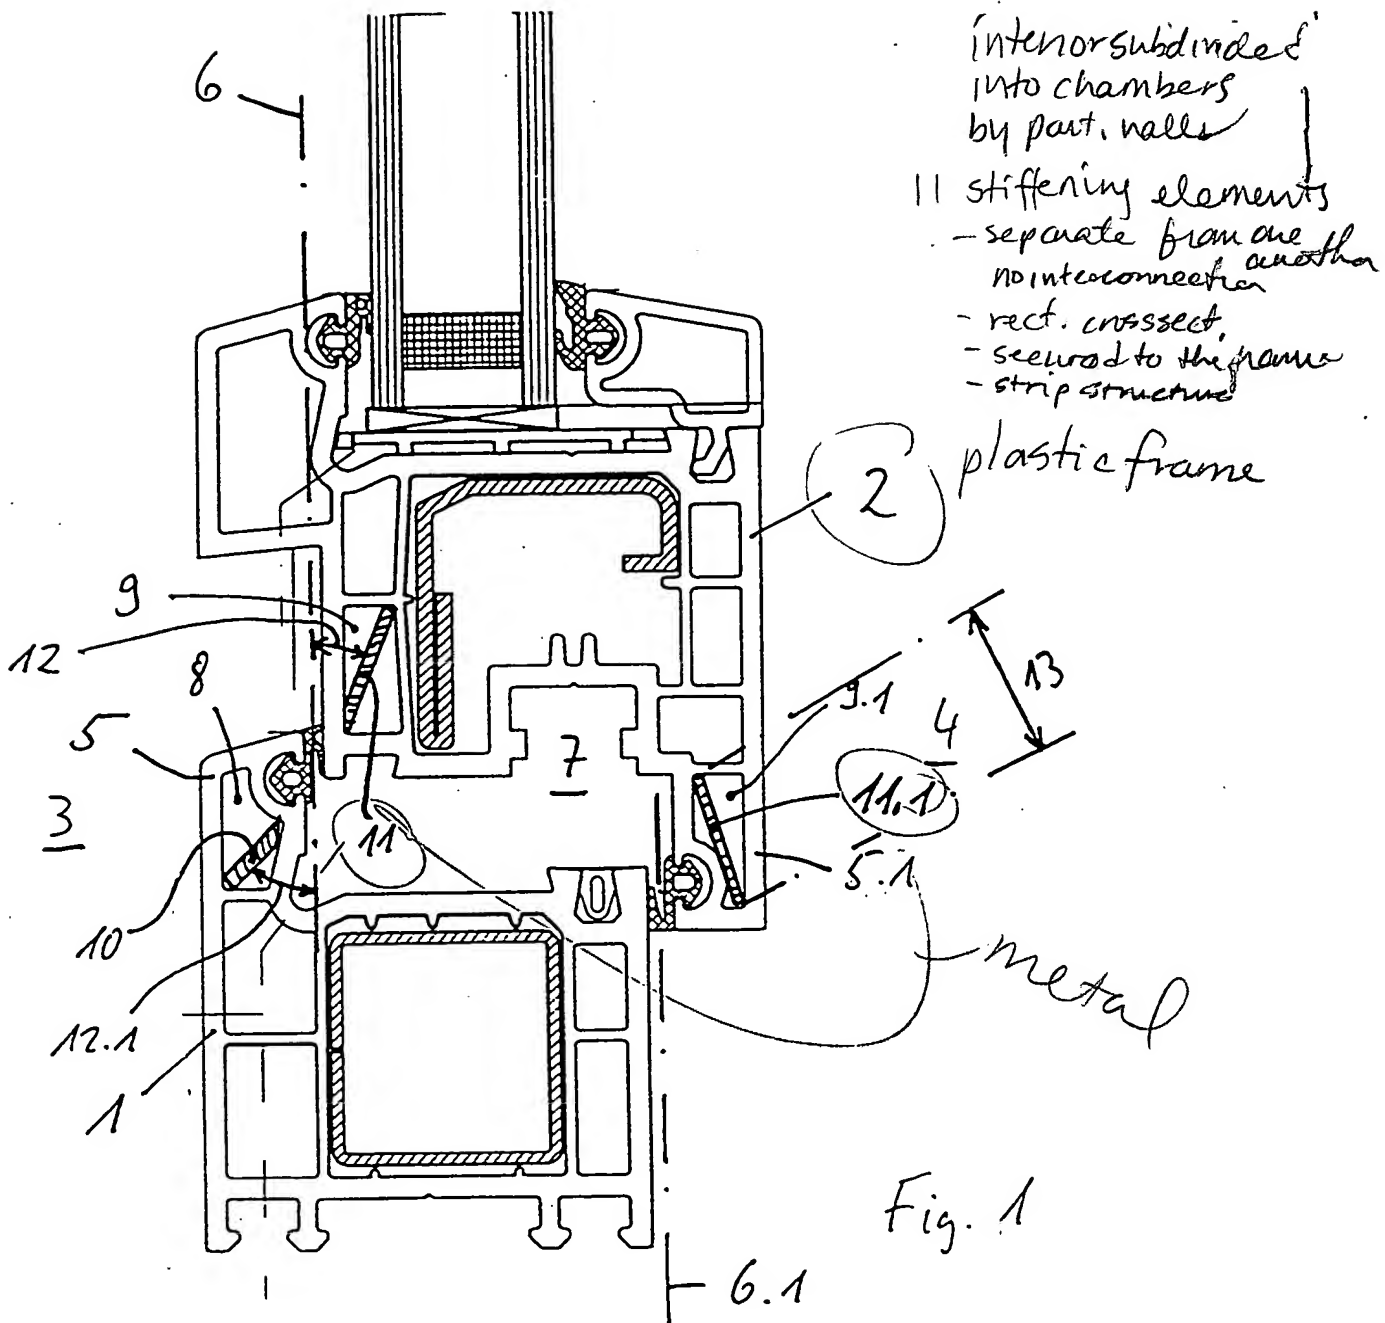 interior subdivided
into chambers
by part. walls
11 stiffening elements
- separate from one another
no interconnection
- rect. crosssect.
- secured to the frame
- strip structure
plastic frame
2
6
9
12
8
5
3
10
12.1
1
11
7
9.1
4
11.1
5.1
13
metal
Fig. 1
6.1